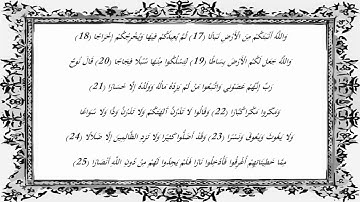 وَاللَّهُ أَنْبَتَكُمْ مِنَ الْأَرْضِ نَبَاتًا (17) ثُمَّ يُعِيدُكُمْ فِيهَا وَيُخْرِجُكُمْ إِخْرَاجًا (18)
وَاللَّهُ جَعَلَ لَكُمُ الْأَرْضَ بِسَاطًا (19) لِتَسْلُكُوا مِنْهَا سُبُلًا فِجَاجًا (20) قَالَ نُوحٌ
رَبِّ إِنَّهُمْ عَصَوْنِي وَاتَّبَعُوا مَنْ لَمْ يَزِدْهُ مَالُهُ وَوَلَدُهُ إِلَّا خَسَارًا (21)
وَمَكَرُوا مَكْرًا كُبَّارًا (22) وَقَالُوا لَا تَذَرُنَّ آلِهَتَكُمْ وَلَا تَذَرُنَّ وَدًّا وَلَا سُوَاعًا
وَلَا يَغُوثَ وَيَعُوقَ وَنَسْرًا (23) وَقَدْ أَضَلُّوا كَثِيرًا وَلَا تَزِدِ الظَّالِمِينَ إِلَّا ضَلَالًا (24)
مِمَّا خَطِيئَاتِهِمْ أُغْرِقُوا فَأُدْخِلُوا نَارًا فَلَمْ يَجِدُوا لَهُمْ مِنْ دُونِ اللَّهِ أَنْصَارًا (25)